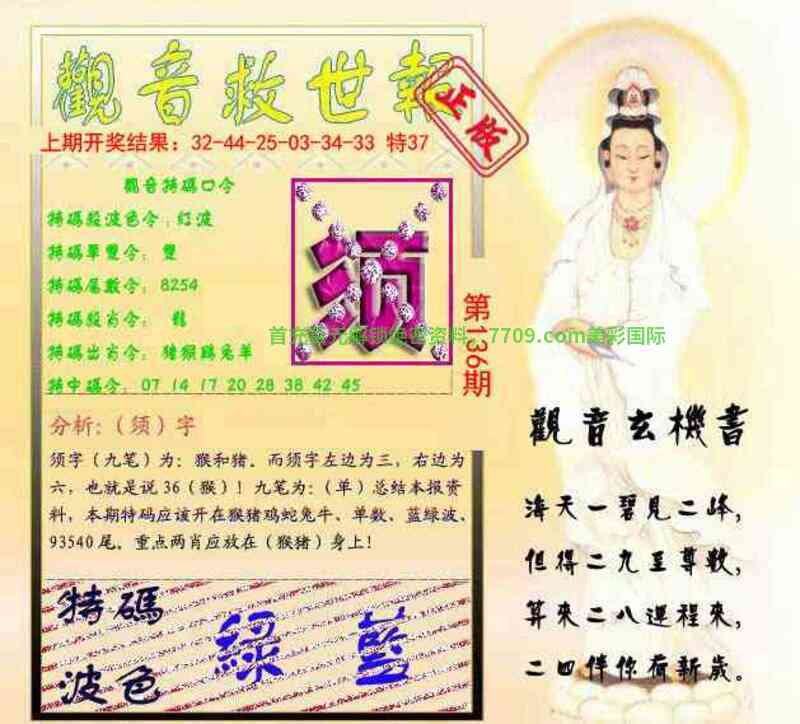 觀音救世報
正版
上期开奖结果：32-44-25-03-34-33 特37
觀音特碼口令
特碼殺波色令：红波
特碼單雙令：雙
特碼尾數令：8254
特碼殺肖令：龍
特碼出肖令：猪猴鷄兔羊
特中碼令：07 14 17 20 28 38 42 45
须
第136期
7709.com美彩国际
分析:（须）字
须字（九笔）为：猴和猪．而须字左边为三，右边为
六，也就是说36（猴）！九笔为:（单）总结本报资
料，本期特码应该开在猴猪鸡蛇兔牛、单数、蓝绿波、
93540尾．重点两肖应放在（猴猪）身上！
特碼
波色
綠 藍
觀音玄機書
海天一碧見二峰，
但得二九至尊數，
算來二八運程來，
二四伴你荷新歲。